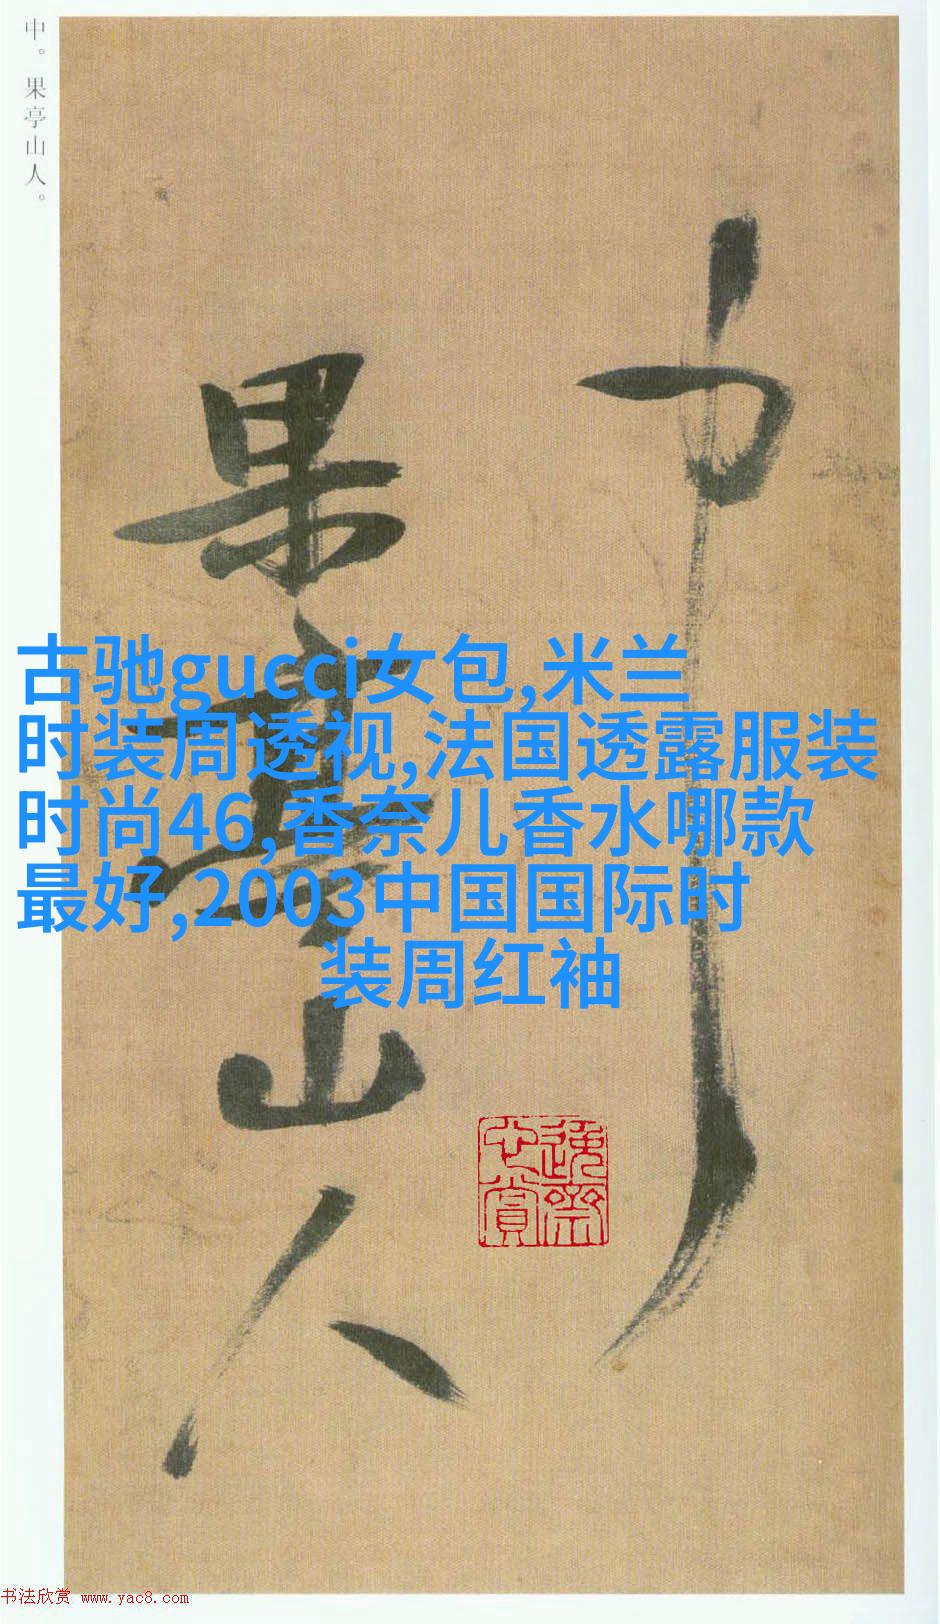 中。果亭山人。
中
果亭山人
古驰gucci女包,米兰
时装周透视,法国透露服装
时尚46,香奈儿香水哪款
最好,2003中国国际时
装周红袖
心賞
书法欣赏 www.yac8.com